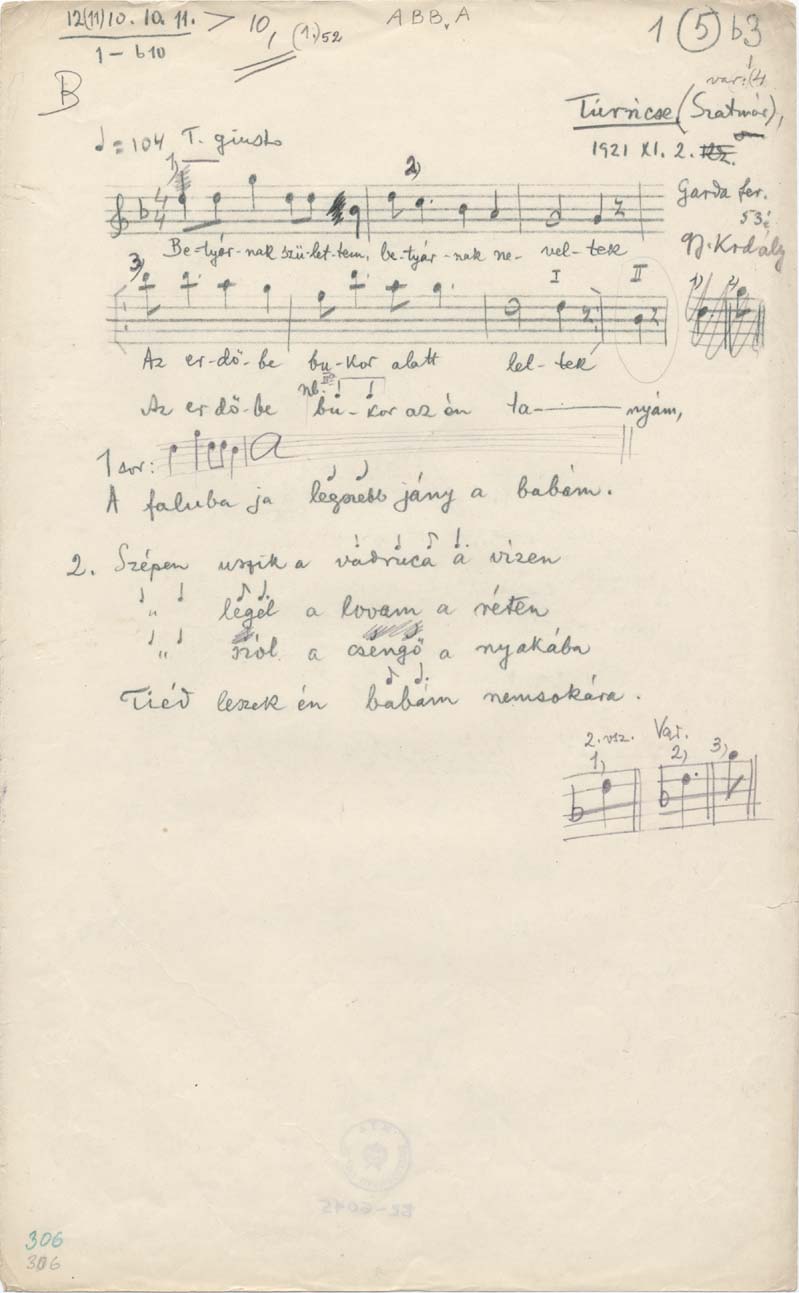 12(11)10. 10. 11. > 10, (1.)52
1 – b10
ABBvA
1 (5) b3
B
var:
Túrricse (Szatmár),
1921 XI. 2.
Garda fer.
53 é
N. Kodály
♩ = 104 T. giusto
1) 2)
Be-tyár-nak szü-let-tem, be-tyár-nak ne-vel-tek
3) I II 1) 2)
Az er-dő-be bu-kor alatt lel-tek
nb.
Az erdő-be bu-kor az én ta- nyám,
1 sor:
A faluba ja legszebb jány a babám.
2. Szépen uszik a vadruca a vizen
„ legel a lovam a réten
„ szól a csengő a nyakába
Tiéd leszek én babám nemsokára.
2. vsz. Var.
1) 2) 3)
306
306